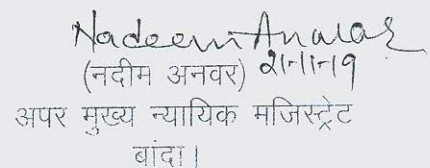 Nadeem Anwar
(नदीम अनवर) 21-11-19
अपर मुख्य न्यायिक मजिस्ट्रेट
बांदा।